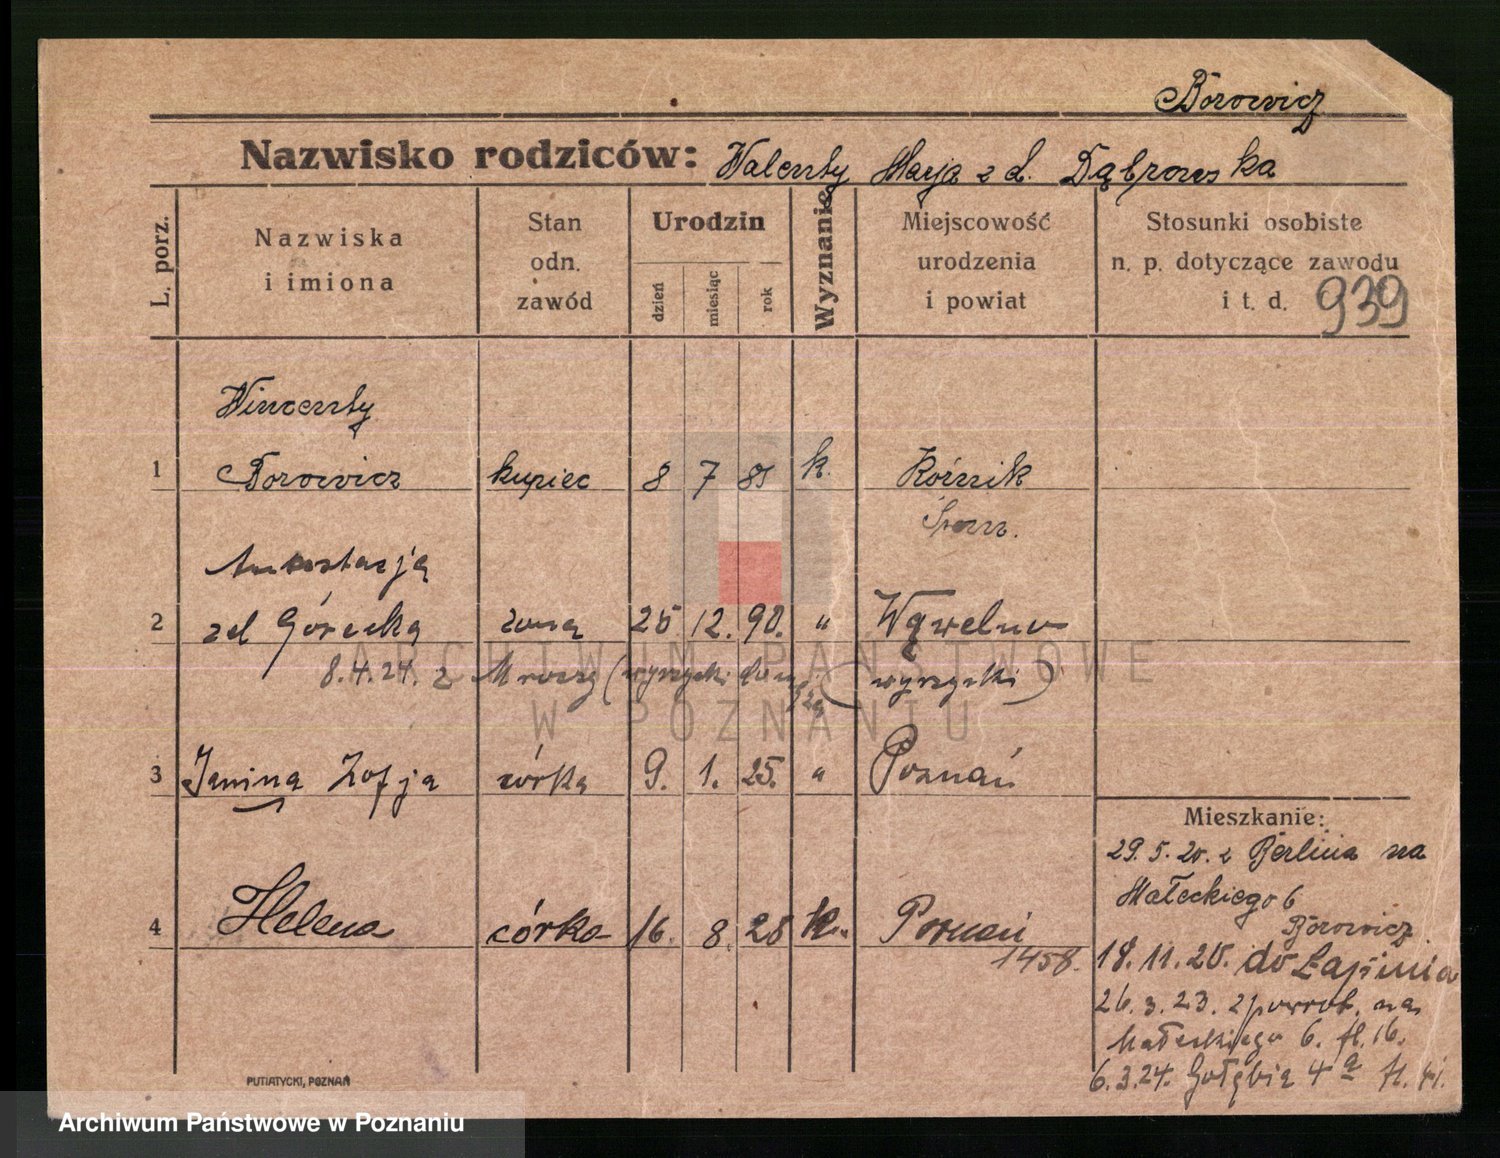 Borowicz
Nazwisko rodziców: Walenty Marja z d. Dąbrowska
L. porz.
Nazwiska i imiona
Stan odn. zawód
Urodzin
dzień
miesiąc
rok
Wyznanie
Miejscowość urodzenia i powiat
Stosunki osobiste n. p. dotyczące zawodu i t. d.
939
Wincenty
1 Borowicz kupiec 8 7 85 k. Kórnik
Śrem.
Anastazja
2 zd Górecka żona 25. 12. 90. "
8.4.24. z Mroczy (wyrzyski (wyrzyski)
3 Janina Zofja córka 9. 1. 25. " Poznań
4 Helena córka 16. 8. 28 k. Poznań
1458.
Mieszkanie:
29. 5. 20. z Berlina na
Małeckiego 6
Borowicz
18. 11. 20. do
26. 3. 23. z powrot. na
Małeckiego 6. 16.
6.3.24. Gołębia 4a 41.
PUTIATYCKI, POZNAŃ
ARCHIWUM PAŃSTWOWE
W POZNANIU
Archiwum Państwowe w Poznaniu